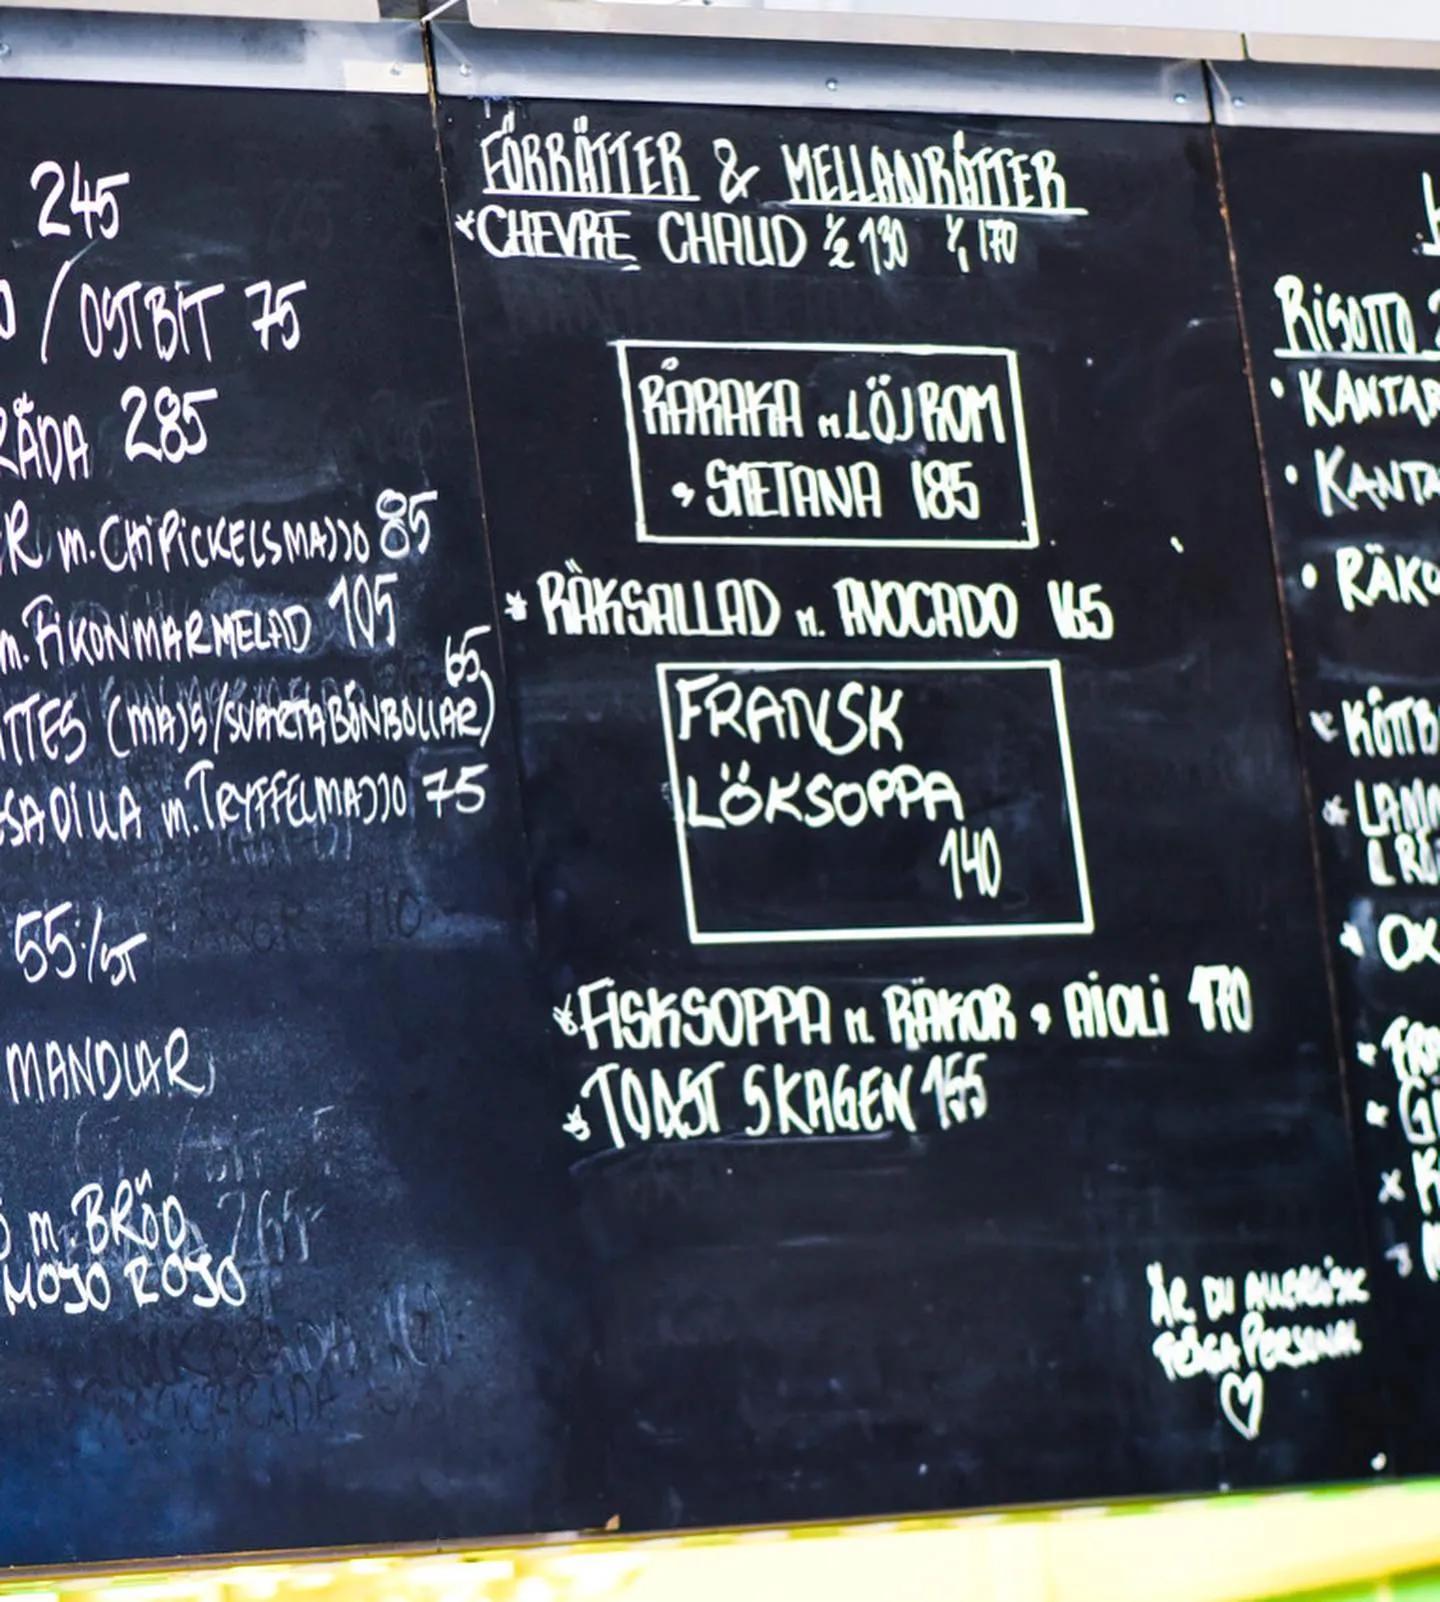 245
/ OSTBIT 75
RÄDA 285
ER m. CHiPiCKELSMAJJO 85
m. FiKONMARMELAD 105
65
TTES (MAJS/SVARTABÖNBOLLAR)
ESADILLA m. TRYFFELMAJJO 75
55:/ST
MANDLAR
m. BRÖD
MOJO ROJO
FÖRRÄTTER & MELLANRÄTTER
*CHEVRE CHAUD ½ 130 1/1 170
RÅRAKA m LÖJROM
, SMETANA 185
* RÄKSALLAD m. AVOCADO 165
FRANSK
LÖKSOPPA
140
*FISKSOPPA m. RÄKOR , AiOLi 170
* TOAST SKAGEN 155
ÄR DU ALLERGiSK
FRÅGA PERSONAL
RiSOTTO
• KANTAR
• KANTA
• RÄKO
* KÖTTB
* LAMM
* OX